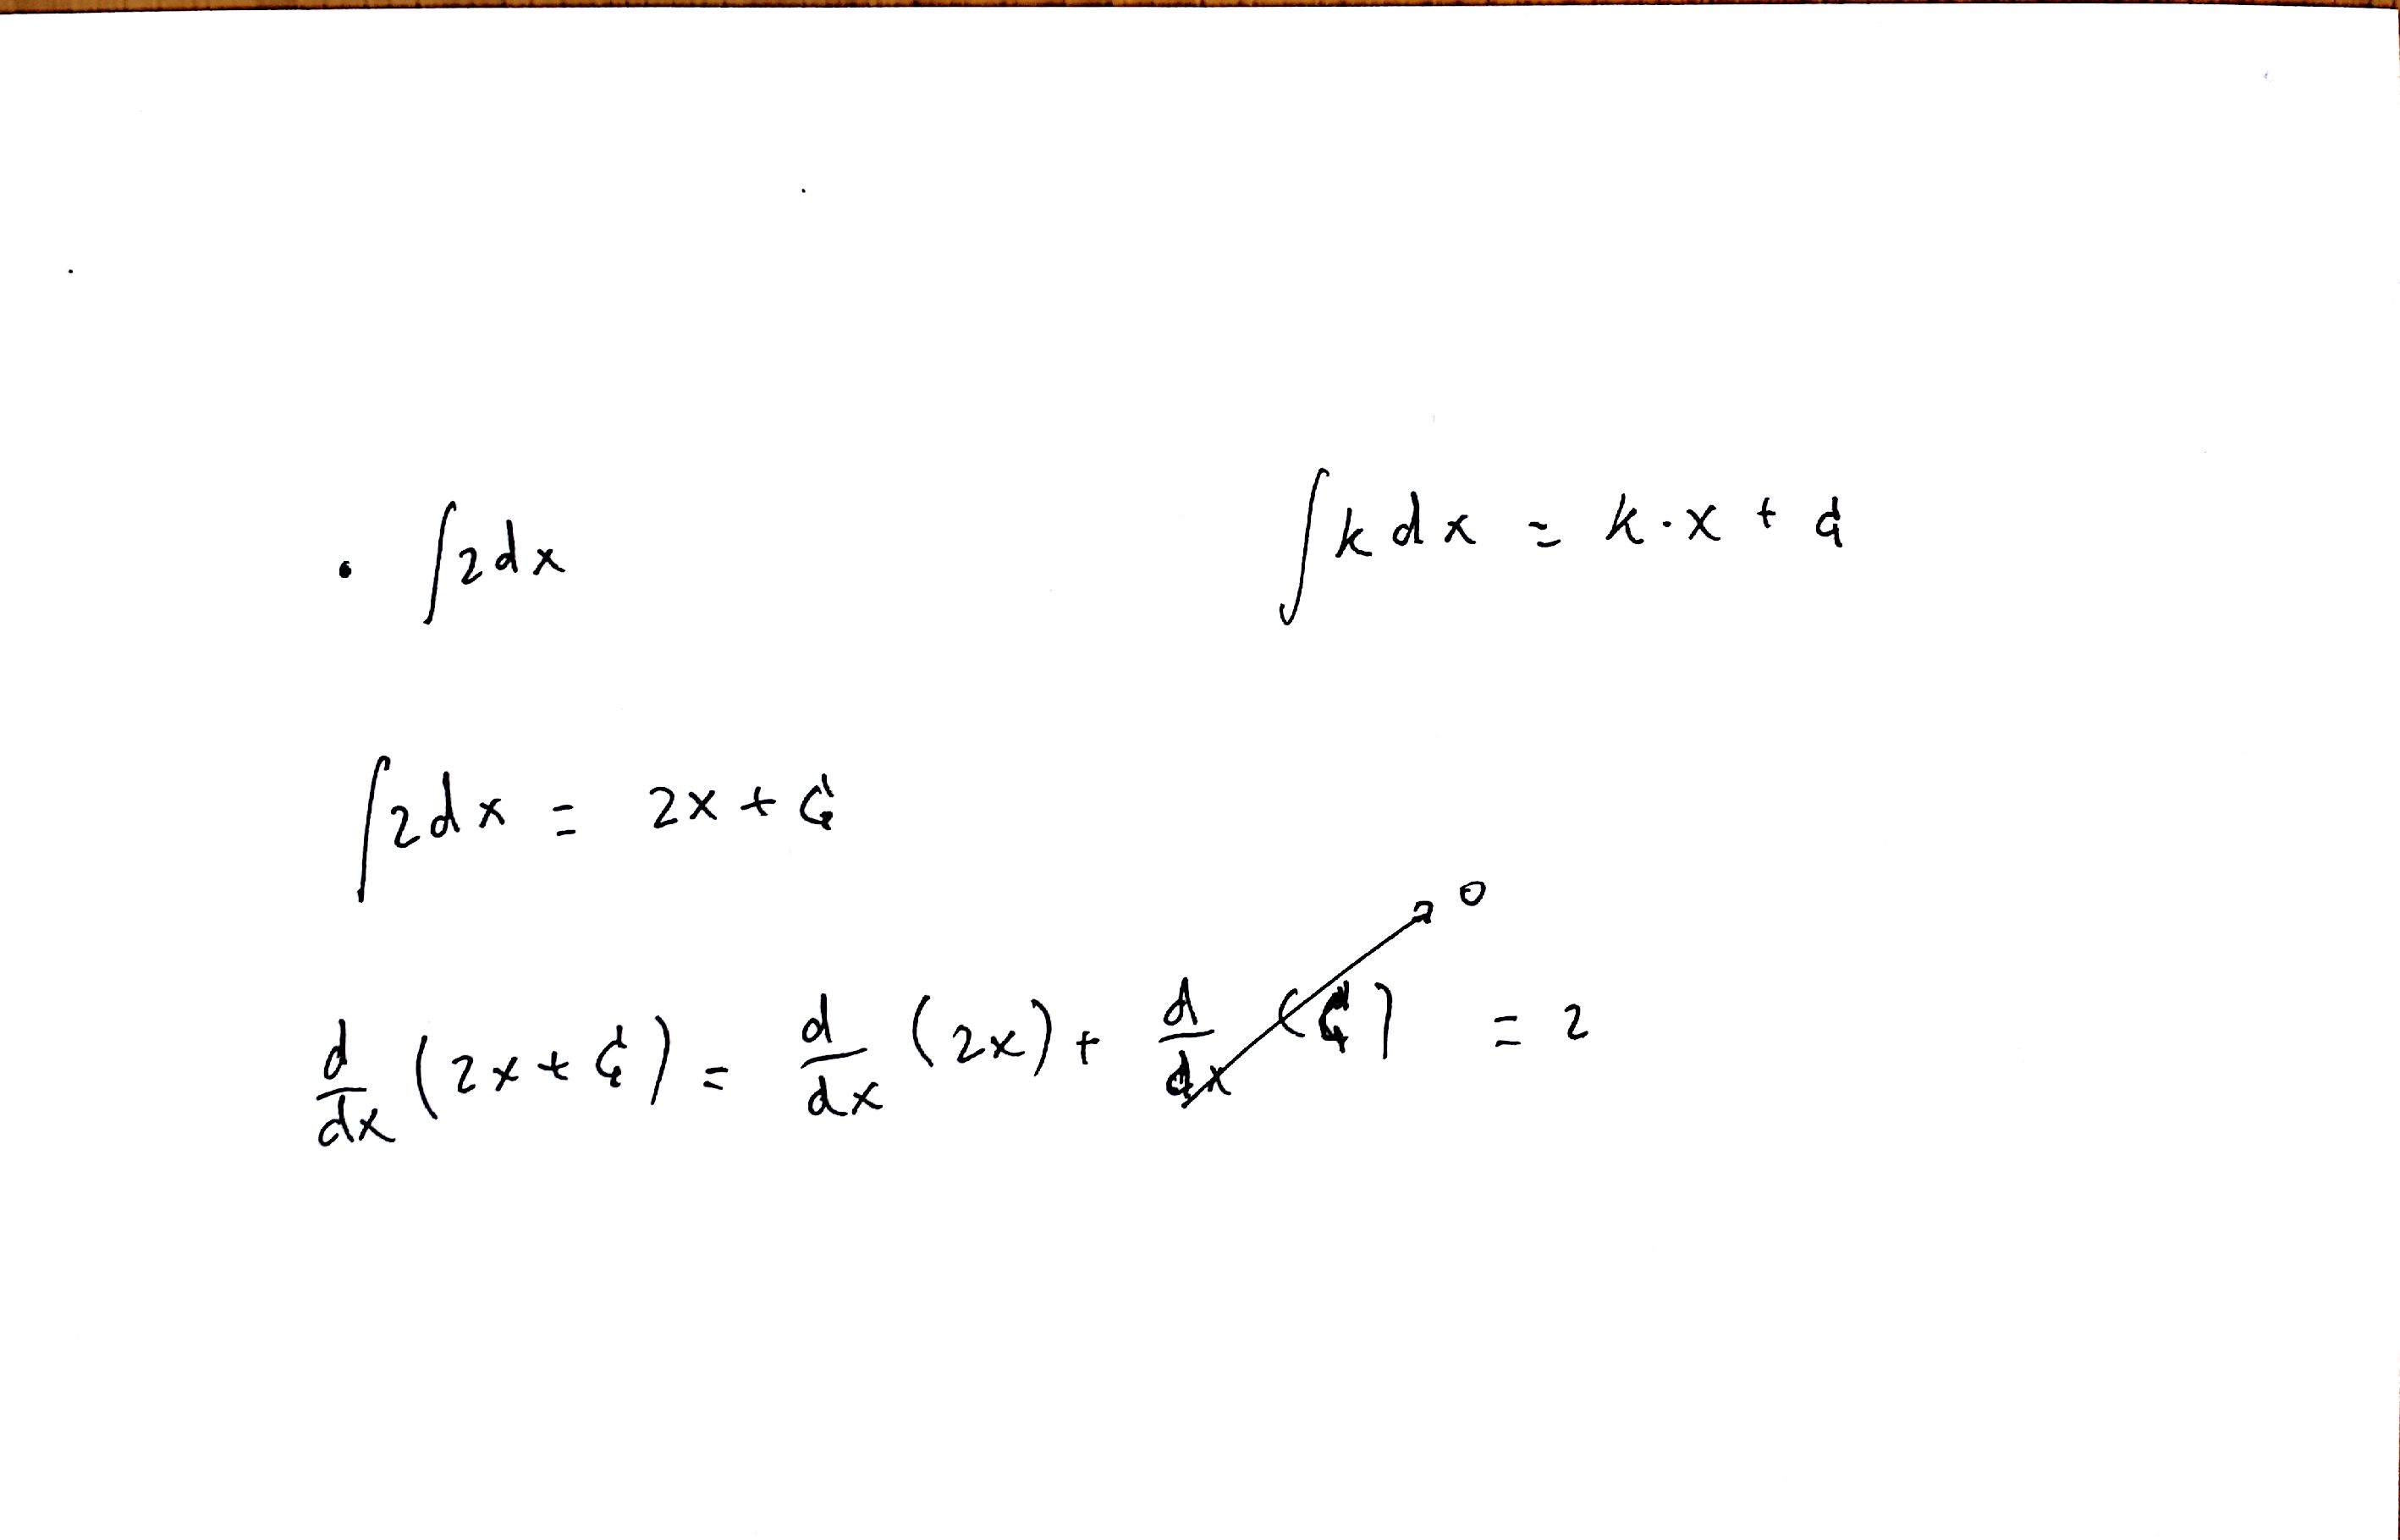 • ∫2dx
∫k dx = k·x + C
∫2dx = 2x + C
d/dx (2x + C) = d/dx (2x) + d/dx (C) → 0 = 2